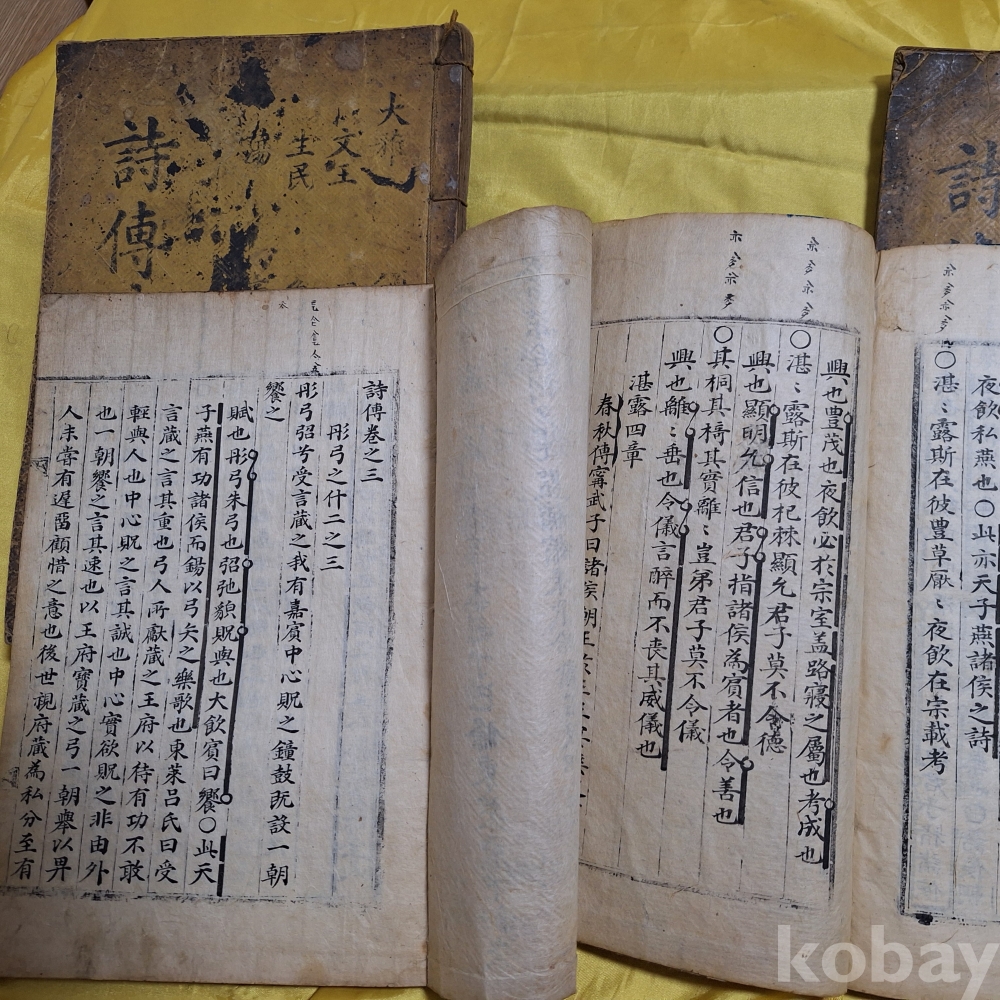 詩傳
大雅
文王
生民
詩
夜飲私燕也○此亦天子燕諸侯之詩
○湛〻露斯在彼豊草厭〻夜飲在宗載考
興也豊茂也夜飲必於宗室盖路寢之屬也考成也
○湛〻露斯在彼杞棘顯允君子莫不令德
興也顯明允信也君子指諸侯為賓者也令善也
○其桐其椅其實離〻豈弟君子莫不令儀
興也離〻垂也令儀言醉而不喪其威儀也
湛露四章
春秋傳寗武子曰諸侯朝王
詩傳卷之三
彤弓之什二之三
彤弓弨兮受言蔵之我有嘉賓中心貺之鐘鼓旣設一朝
饗之
賦也彤弓朱弓也弨弛貌貺與也大飲賓曰饗○此天
子燕有功諸侯而錫以弓矢之樂歌也東萊呂氏曰受
言蔵之言其重也弓人所獻蔵之王府以待有功不敢
輕與人也中心貺之言其誠也中心實欲貺之非由外
也一朝饗之言其速也以王府寶蔵之弓一朝舉以畀
人未嘗有遲畱顧惜之意也後世視府蔵為私分至有
kobay